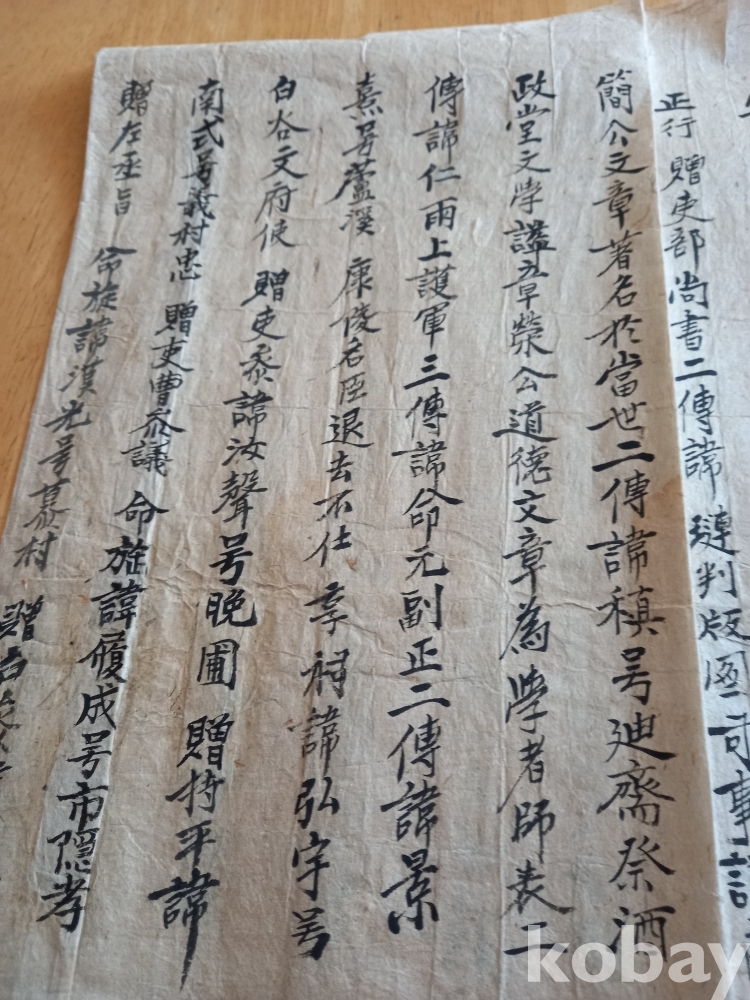 正行 贈吏部尚書二傳諱璉判版圖司事諡
簡公文章著名於當世二傳諱稹号迪齋祭酒
政堂文學諡章榮公道德文章為學者師表二
傳諱仁雨上護軍三傳諱命元副正二傳諱景
熹号蘆溪 康陵名臣退去不仕享祠諱弘宇号
白谷文府使 贈吏參諱汝聲号晩圃 贈持平諱
南式号義村忠 贈吏曹參議 命旋諱履成号市隱孝
贈左丞旨 命旋諱漢光号慕村
贈
kobay